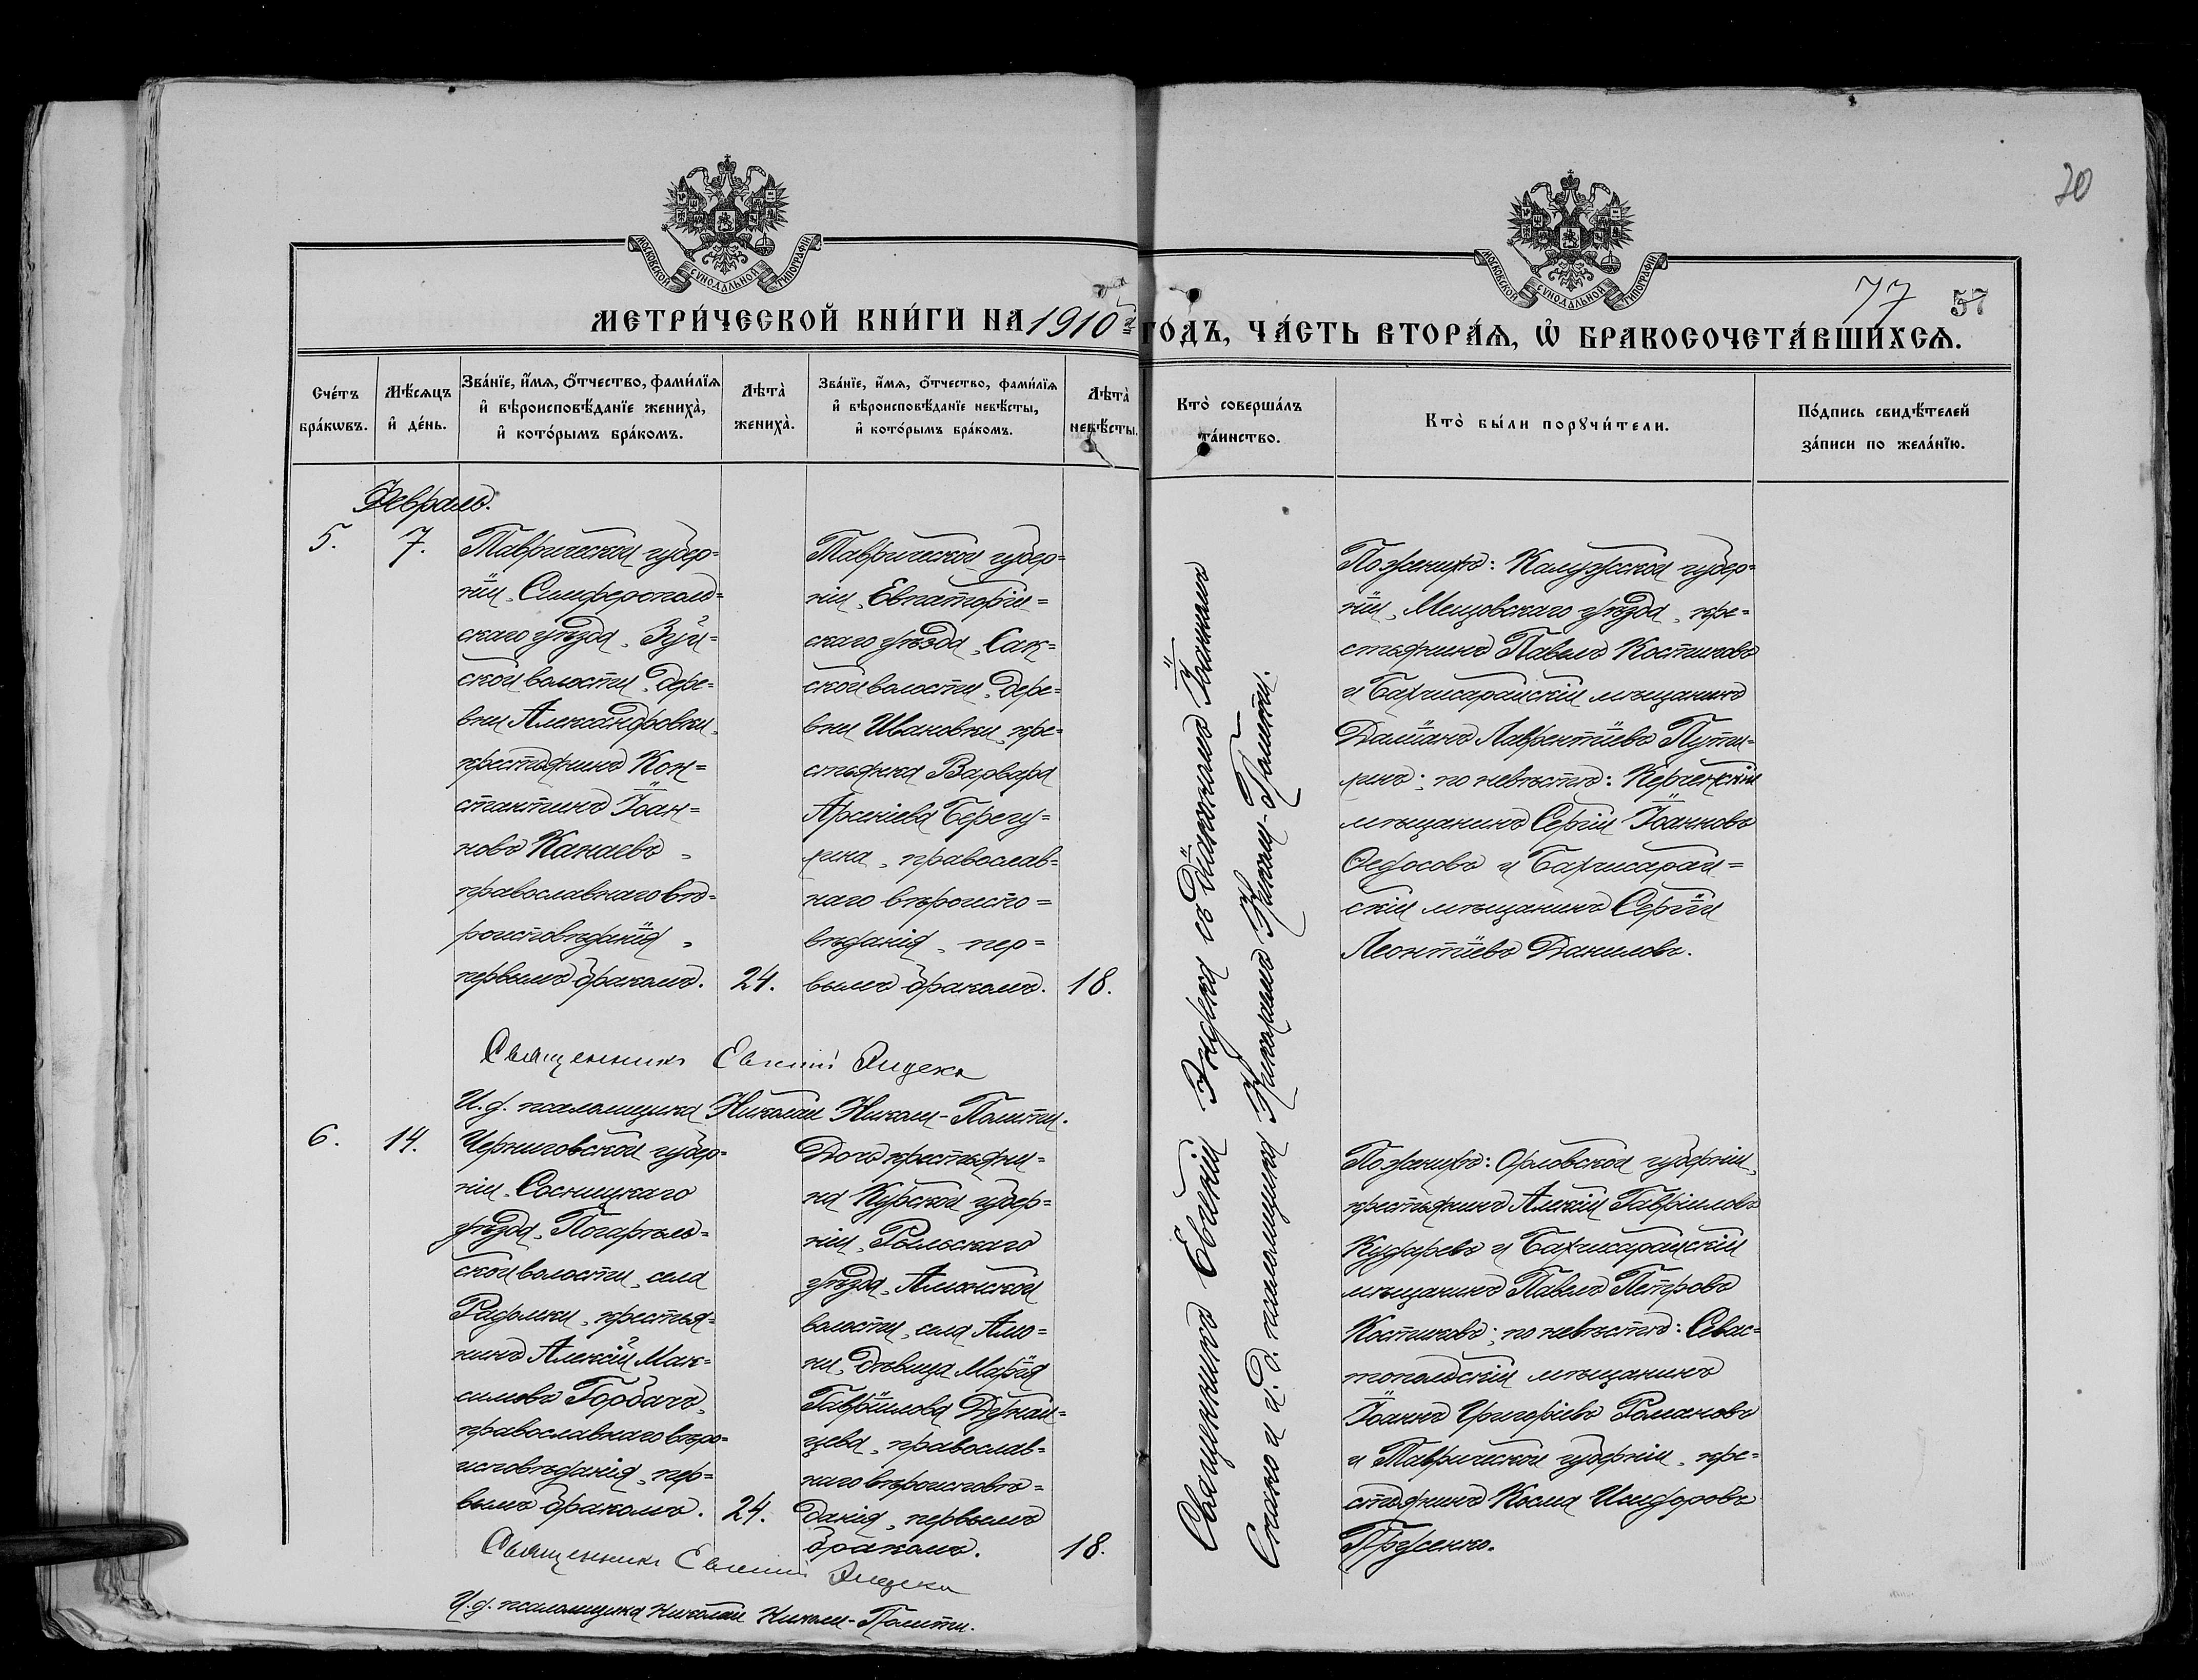 20
МОСКОВСКОЙ СУНОДАЛЬНОЙ ТИПОГРАФІИ
МОСКОВСКОЙ СУНОДАЛЬНОЙ ТИПОГРАФІИ
77 57
МЕТРИ́ЧЕСКОЙ КНИ́ГИ НА 1910й ГО́ДЪ, ЧА́СТЬ ВТОРА́Ѧ, Ѽ БРАКОСОЧЕТА́ВШИХСѦ.
Сче́тъ бра́кѡвъ.
Мѣ́сѧцъ и҆ де́нь.
Зва́нїе, и҆́мѧ, ѻ҆́тчество, фами́лїѧ и҆ вѣроисповѣ́данїе жениха̀, и҆ кото́рымъ бра́комъ.
Лѣта̀ жениха̀.
Зва́нїе, и҆́мѧ, ѻ҆́тчество, фами́лїѧ и҆ вѣроисповѣ́данїе невѣ́сты, и҆ кото́рымъ бра́комъ.
Лѣта̀ невѣ́сты.
Кто̀ соверша́лъ та́инство.
Кто̀ бы́ли порꙋчи́тели.
По́дпись свидѣ́телей за́писи по жела́нїю.
Февраль.
5.
7.
Таврической губер=
ніи, Симферополь=
скаго уѣзда, Зуй=
ской волости, дере=
вни Александровки,
крестьянинъ Кон=
стантинъ Іоан=
новъ Канаевъ,
православнаго вѣ=
роисповѣданія,
первымъ бракомъ.
24.
Таврической губер=
ніи, Евпаторій=
скаго уѣзда, Сак=
ской волости, дере=
вни Ивановки, кре=
стьянка Варвара
Арсеніева Берегу=
лина, православ=
наго вѣроиспо=
вѣданія, пер=
вымъ бракомъ.
18.
Священникъ Евгеній Эндека съ діакономъ Іоанномъ
Спано и и. д. псаломщика Николаемъ Николи-Политти.
По женихѣ: Калужской губер=
ніи, Мещовскаго уѣзда, кре=
стьянинъ Павелъ Костиковъ
и Бахчисарайскій мѣщанинъ
Даміанъ Лаврентіевъ Пути=
линъ; по невѣстѣ: Керченскій
мѣщанинъ Сергій Іоанновъ
Ѳедосовъ и Бахчисарай=
скій мѣщанинъ Сергій
Леонтіевъ Даниловъ.
Священникъ Евгеній Эндека
И. д. псаломщика Николай Николи-Политти.
6.
14.
Черниговской губер=
ніи, Сосницкаго
уѣзда,
ской волости, села
Радомки, крестья=
нинъ Алексій Мак=
симовъ Горбачъ,
православнаго вѣро=
исповѣданія, пер=
вымъ бракомъ.
24.
Дочь крестьяни=
на Курской губер=
ніи, Рыльскаго
уѣзда,
волости, села
дѣвица Марія
Гавріилова
православ=
наго вѣроисповѣ=
данія, первымъ
бракомъ.
18.
По женихѣ: Орловской губерніи,
крестьянинъ Алексій Гавріиловъ
и Бахчисарайскій
мѣщанинъ Павелъ Петровъ
Костиковъ; по невѣстѣ: Севас=
топольскій мѣщанинъ
Іоаннъ Григоріевъ Романовъ
и Таврической губерніи, кре=
стьянинъ Косма Исидоровъ
Священникъ Евгеній Эндека
И. д. псаломщика Николай Николи-Политти.